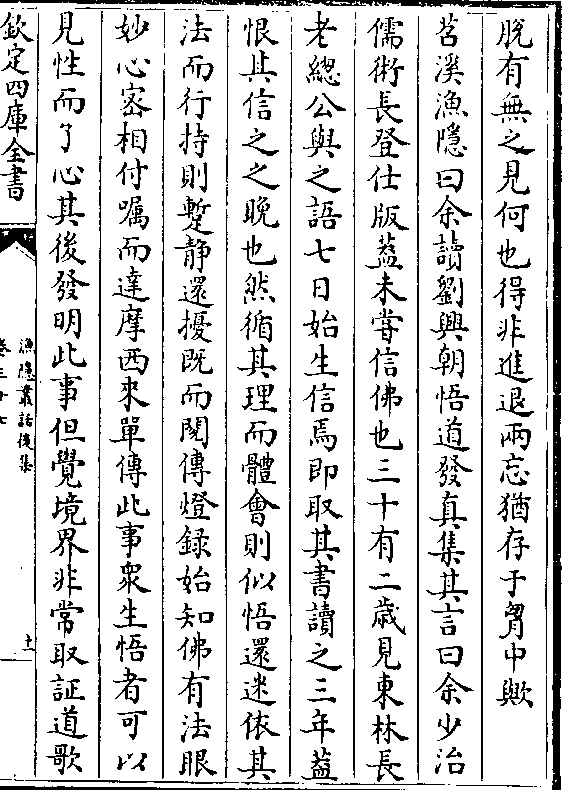 脫有無之見何也得非進退兩忘猶存于胷中歟
苕溪漁隱曰余讀劉興朝悟道發真集其言曰余少治
儒術長登仕版葢未嘗信佛也三十有二歲見東林長
老總公與之語七日始生信焉即取其書讀之三年葢
恨其信之之晚也然循其理而體會則似悟還迷依其
法而行持則蹔静還擾既而閱傳燈録始知佛有法眼
妙心宻相付囑而達摩西來單傳此事衆生悟者可以
見性而了心其後發明此事但覺境界非常取証道歌
欽定四庫全書
漁隱叢話後集
卷三十七
十一